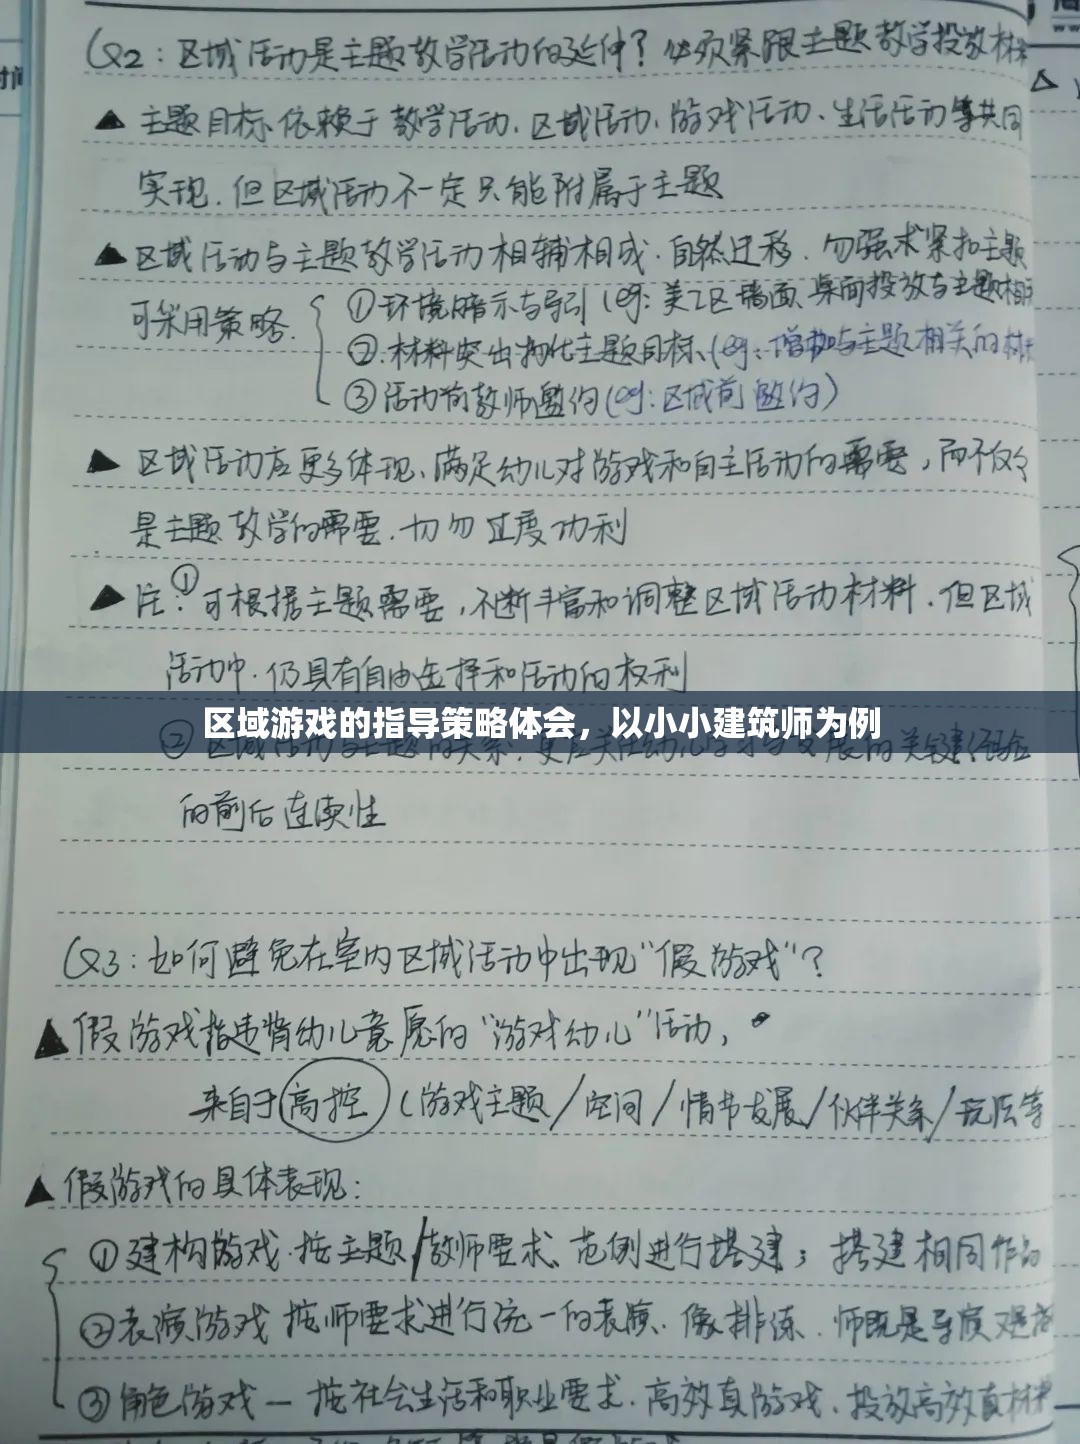 Q2：区域活动是主题教学活动的延伸？必须紧跟主题教学投放材
▲ 主题目标依赖于教学活动、区域活动、游戏活动、生活活动等共同
实现，但区域活动不一定只能附属于主题
▲ 区域活动与主题教学活动相辅相成，自然迁移，勿强求紧扣主题
可采用策略
①环境暗示与导引（eg：美工区墙面、桌面投放与主题相
②材料突出物化主题目标（eg：增加与主题相关的材
③活动前教师邀约（eg：区域前邀约）
▲ 区域活动应更多体现、满足幼儿对游戏和自主活动的需要，而不仅仅
是主题教学的需要，切勿过度功利
▲ 注：①可根据主题需要，不断丰富和调整区域活动材料，但区域
活动中，仍具有自由选择和活动的权利
区域游戏的指导策略体会，以小小建筑师为例
② 区域活动与主题的关系，更应关注幼儿学习与发展的关键经验
的前后连续性
Q3：如何避免在室内区域活动中出现"假游戏"？
▲ 假游戏指违背幼儿意愿的"游戏幼儿"活动，
来自于高控（游戏主题/空间/情节发展/伙伴关系/玩法等
▲ 假游戏的具体表现：
①建构游戏 按主题/教师要求、范例进行搭建；搭建相同作品
②表演游戏 按师要求进行统一的表演，像排练，师既是导演又是
③角色游戏 — 按社会生活和职业要求，高效真游戏，投放高效真材